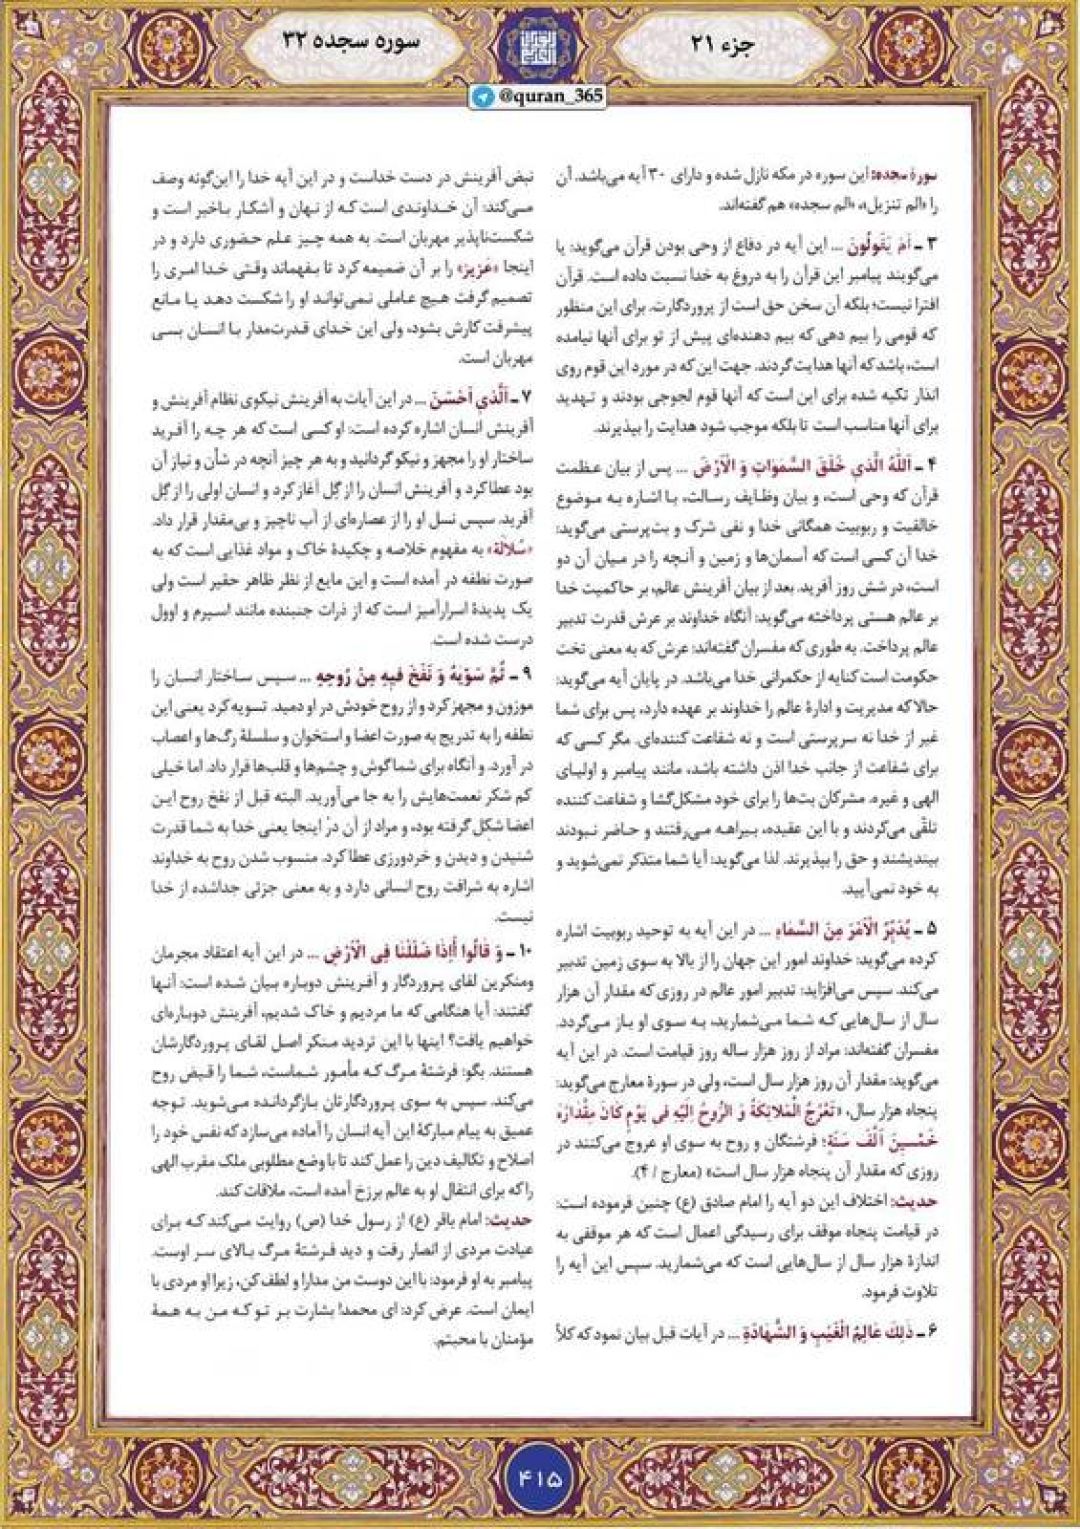 جزء ۲۱
سوره سجده ۳۲
@quran_365
سورهٔ سجده: این سوره در مکه نازل شده و دارای ۳۰ آیه می‌باشد. آن
را «الم تنزیل»، «الم سجده» هم گفته‌اند.
۳ ـ اَمْ یَقُولُونَ ... این آیه در دفاع از وحی بودن قرآن می‌گوید: یا
می‌گویند پیامبر این قرآن را به دروغ به خدا نسبت داده است. قرآن
افترا نیست؛ بلکه آن سخن حق است از پروردگارت. برای این منظور
که قومی را بیم دهی که بیم دهنده‌ای پیش از تو برای آنها نیامده
است، باشد که آنها هدایت گردند. جهت این که در مورد این قوم روی
انذار تکیه شده برای این است که آنها قوم لجوجی بودند و تهدید
برای آنها مناسب است تا بلکه موجب شود هدایت را بپذیرند.
۴ ـ اَللّٰهُ الَّذِي خَلَقَ السَّمٰوٰاتِ وَ الْاَرْضَ ... پس از بیان عظمت
قرآن که وحی است، و بیان وظایف رسالت، با اشاره به موضوع
خالقیت و ربوبیت همگانی خدا و نفی شرک و بت‌پرستی می‌گوید:
خدا آن کسی است که آسمان‌ها و زمین و آنچه را در میان آن دو
است، در شش روز آفرید. بعد از بیان آفرینش عالم، بر حاکمیت خدا
بر عالم هستی پرداخته می‌گوید: آنگاه خداوند بر عرش قدرت تدبیر
عالم پرداخت. به طوری که مفسران گفته‌اند: عرش که به معنی تخت
حکومت است کنایه از حکمرانی خدا می‌باشد. در پایان آیه می‌گوید:
حالا که مدیریت و ادارهٔ عالم را خداوند بر عهده دارد، پس برای شما
غیر از خدا نه سرپرستی است و نه شفاعت کننده‌ای. مگر کسی که
برای شفاعت از جانب خدا اذن داشته باشد، مانند پیامبر و اولیای
الهی و غیره. مشرکان بت‌ها را برای خود مشکل‌گشا و شفاعت کننده
تلقّی می‌کردند و با این عقیده، بیراهه می‌رفتند و حاضر نبودند
بیندیشند و حق را بپذیرند. لذا می‌گوید: آیا شما متذکر نمی‌شوید و
به خود نمی‌آیید.
۵ ـ یُدَبِّرُ الْاَمْرَ مِنَ السَّمٰاءِ ... در این آیه به توحید ربوبیت اشاره
کرده می‌گوید: خداوند امور این جهان را از بالا به سوی زمین تدبیر
می‌کند. سپس می‌افزاید: تدبیر امور عالم در روزی که مقدار آن هزار
سال از سال‌هایی که شما می‌شمارید، به سوی او باز می‌گردد.
مفسران گفته‌اند: مراد از روز هزار ساله روز قیامت است. در این آیه
می‌گوید: مقدار آن روز هزار سال است، ولی در سورهٔ معارج می‌گوید:
پنجاه هزار سال، «تَعْرُجُ الْمَلٰائِكَةُ وَ الرُّوحُ اِلَیْهِ فِی یَوْمٍ كٰانَ مِقْدٰارُهُ
خَمْسِینَ اَلْفَ سَنَةٍ؛ فرشتگان و روح به سوی او عروج می‌کنند در
روزی که مقدار آن پنجاه هزار سال است» (معارج / ۴).
حدیث: اختلاف این دو آیه را امام صادق (ع) چنین فرموده است:
در قیامت پنجاه موقف برای رسیدگی اعمال است که هر موقفی به
اندازهٔ هزار سال از سال‌هایی است که می‌شمارید. سپس این آیه را
تلاوت فرمود.
۶ ـ ذٰلِكَ عٰالِمُ الْغَیْبِ وَ الشَّهٰادَةِ ... در آیات قبل بیان نمود که کلاً
نبض آفرینش در دست خداست و در این آیه خدا را این‌گونه وصف
می‌کند: آن خداوندی است که از نهان و آشکار باخبر است و
شکست‌ناپذیر مهربان است. به همه چیز علم حضوری دارد و در
اینجا «عَزیز» را بر آن ضمیمه کرد تا بفهماند وقتی خدا امری را
تصمیم گرفت هیچ عاملی نمی‌تواند او را شکست دهد یا مانع
پیشرفت کارش بشود، ولی این خدای قدرت‌مدار با انسان بسی
مهربان است.
۷ ـ اَلَّذِي اَحْسَنَ ... در این آیات به آفرینش نیکوی نظام آفرینش و
آفرینش انسان اشاره کرده است: او کسی است که هر چه را آفرید
ساختار او را مجهز و نیکو گردانید و به هر چیز آنچه در شأن و نیاز آن
بود عطا کرد و آفرینش انسان را از گِل آغاز کرد و انسان اولی را از گِل
آفرید. سپس نسل او را از عصاره‌ای از آب ناچیز و بی‌مقدار قرار داد.
«سُلٰالَة» به مفهوم خلاصه و چکیدهٔ خاک و مواد غذایی است که به
صورت نطفه در آمده است و این مایع از نظر ظاهر حقیر است ولی
یک پدیدهٔ اسرارآمیز است که از ذرات جنبنده مانند اسپرم و اوول
درست شده است.
۹ ـ ثُمَّ سَوّٰیهُ وَ نَفَخَ فِیهِ مِنْ رُوحِهِ ... سپس ساختار انسان را
موزون و مجهز کرد و از روح خودش در او دمید. تسویه کرد یعنی این
نطفه را به تدریج به صورت اعضا و استخوان و سلسلهٔ رگ‌ها و اعصاب
در آورد. و آنگاه برای شما گوش و چشم‌ها و قلب‌ها قرار داد. اما خیلی
کم شکر نعمت‌هایش را به جا می‌آورید. البته قبل از نفخ روح این
اعضا شکل گرفته بود، و مراد از آن در اینجا یعنی خدا به شما قدرت
شنیدن و دیدن و خردورزی عطا کرد. منسوب شدن روح به خداوند
اشاره به شرافت روح انسانی دارد و به معنی جزئی جداشده از خدا
نیست.
۱۰ ـ وَ قٰالُوا أَاِذٰا ضَلَلْنٰا فِی الْاَرْضِ ... در این آیه اعتقاد مجرمان
ومنکرین لقای پروردگار و آفرینش دوباره بیان شده است: آنها
گفتند: آیا هنگامی که ما مردیم و خاک شدیم، آفرینش دوباره‌ای
خواهیم یافت؟ اینها با این تردید منکر اصل لقای پروردگارشان
هستند. بگو: فرشتهٔ مرگ که مأمور شماست، شما را قبض روح
می‌کند. سپس به سوی پروردگارتان بازگردانده می‌شوید. توجه
عمیق به پیام مبارکهٔ این آیه انسان را آماده می‌سازد که نفس خود را
اصلاح و تکالیف دین را عمل کند تا با وضع مطلوبی ملک مقرب الهی
را که برای انتقال او به عالم برزخ آمده است، ملاقات کند.
حدیث: امام باقر (ع) از رسول خدا (ص) روایت می‌کند که برای
عیادت مردی از انصار رفت و دید فرشتهٔ مرگ بالای سر اوست.
پیامبر به او فرمود: با این دوست من مدارا و لطف کن، زیرا او مردی با
ایمان است. عرض کرد: ای محمد! بشارت بر تو که من به همهٔ
مؤمنان با محبتم.
۴۱۵